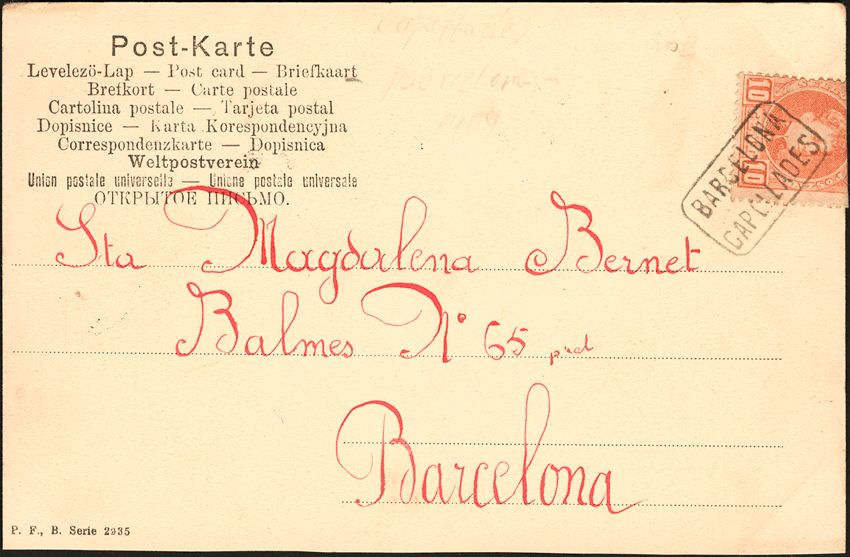 Post-Karte
Levelezö-Lap — Post card — Briefkaart
Brefkort — Carte postale
Cartolina postale — Tarjeta postal
Dopisnice — Karta Korespondencyjna
Correspondenzkarte — Dopisnica
Weltpostverein
Union postale universelle — Unione postale universale
ОТКРЫТОЕ ПИСЬМО.
10
10
BARCELONA
CAPELLADES
Sta Magdalena Bernet
Balmes Nº 65 pral
Barcelona
P. F., B. Serie 2935